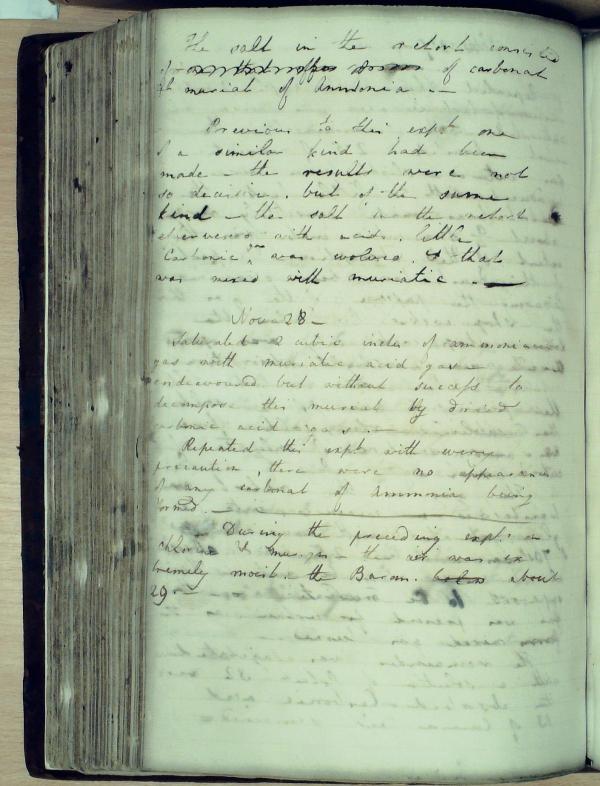 The salt in the retort consisted
of carbonat
& muriat of Ammonia. —
Previous to this expt one
of a similar kind had been
made – the results were not
so decisive, but of the same
kind – the salt in the retort
effervesced with acids. little
Carbonic gas was evolved. & that
was mixed with muriatic. —
Nov 28 –
Saturated 2 cubic inches of ammoniacal
gas with muriatic acid gas –
endeavoured but without success to
decompose this muriat by dried
carbonic acid gas. –
Repeated this expt with every
precaution, there were no appearances
of any carbonat of Ammonia being
formed. —
– During the preceding expts on
the air was ex
tremely moist. the Barom. about
29. –